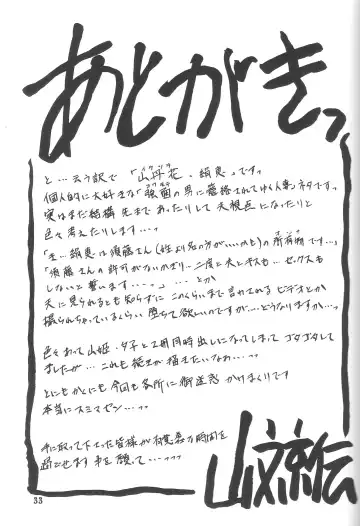 あとがきっ
と…云う訳で「山丹花・絹恵」っです。
個人的に大好きな「覆面の男に蹂躙されてゆく人妻」ネタです。
実はまだ結構先まであったりして夫視点になったりと
色々考えたりします…っ
「ま…絹恵は須藤さん(姓より名の方がいいかも)の所有物です…」
「須藤さんの許可がないかぎり…二度と夫とキスも…セックスも
しないと誓います……っ」……とか
夫に見られるとも知らずにこのくらいまで言わされるビデオとか
撮られちゃっているくらい堕ちて欲しいのですが…どうなりますか…っ
色々あって山姫・夕子と2冊同時出しになってしまってゴタゴタして
ましたが…これも続きが描きたいなぁ…っっ
とにもかくにも今回も各所に御迷惑かけまくりです
本当にスミマセン…っっ
手に取って下さった皆様が有意義な時間を
過ごせます事を願って…っっっ
山文京伝
33